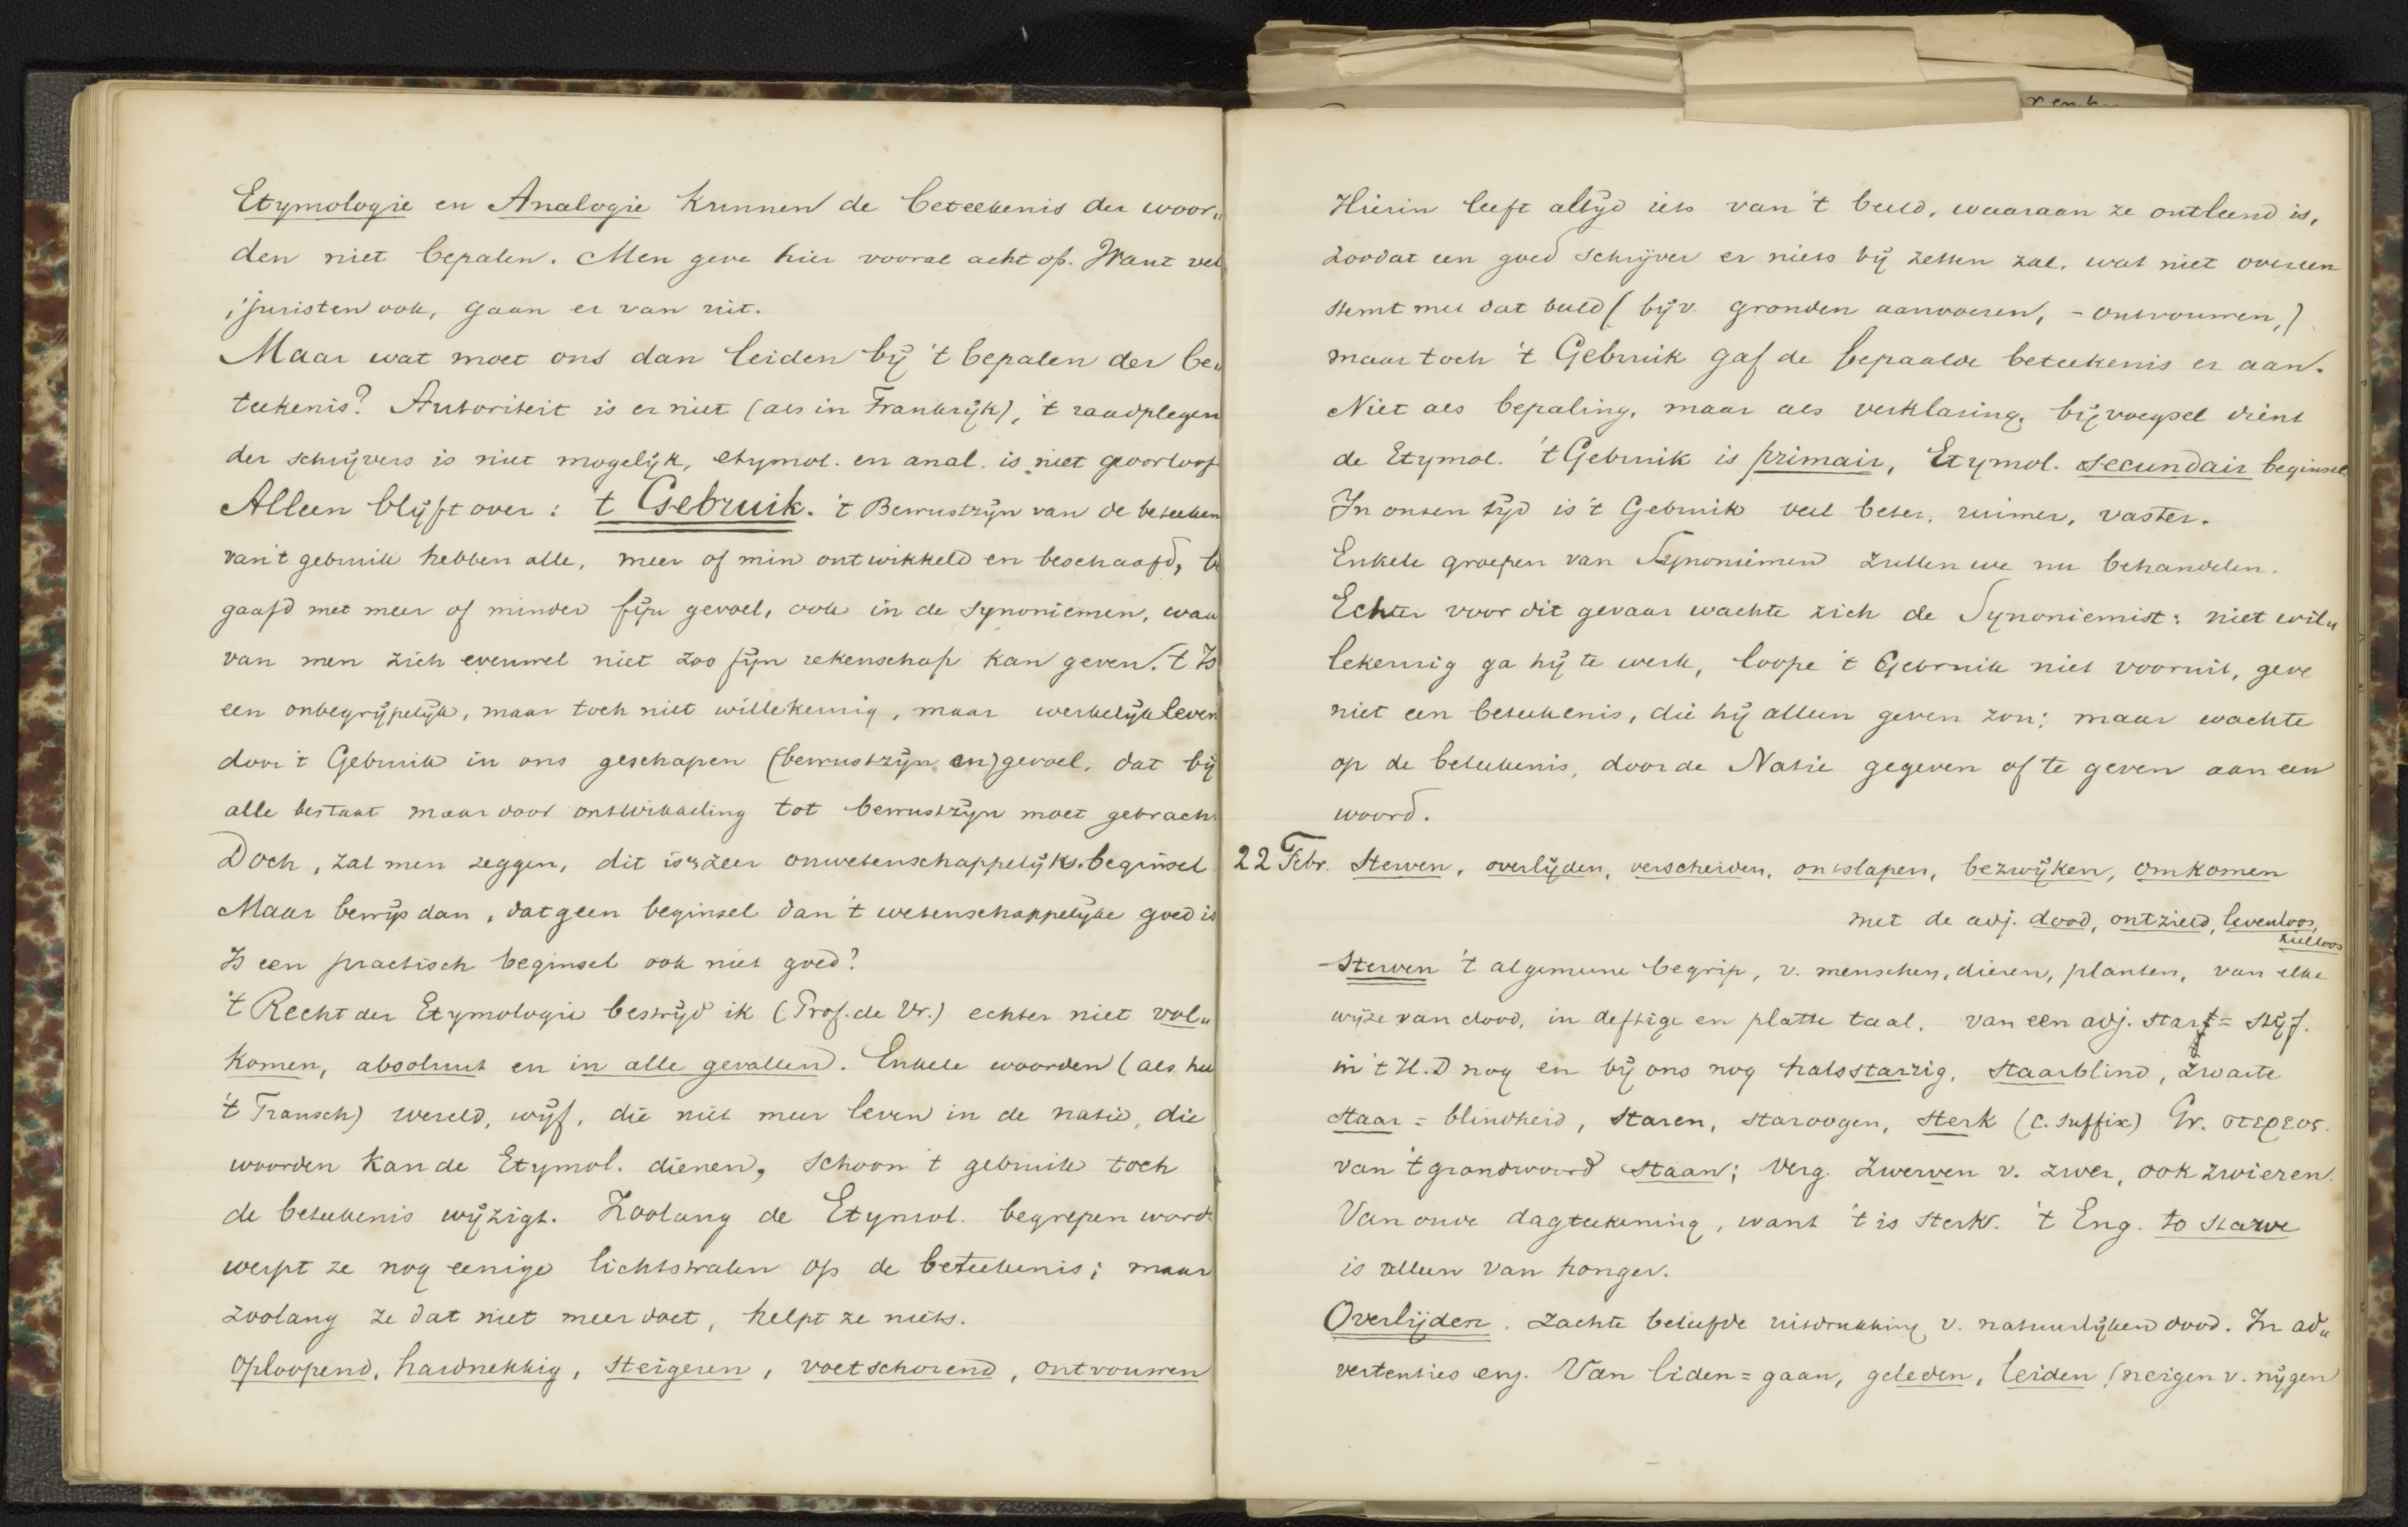 Etymologie en Analogie kunnen de beteekenis der woor„
den niet bepalen. Men geve hier vooral acht op. Want vel
, juristen ook, gaan er van uit.
Maar wat moet ons dan leiden bij 't bepalen der be„
teekenis? Autoriteit is er niet (als in Frankrijk), 't raadplegen
der schrijvers is niet mogelijk, etymol. en anal. is niet geoorloof
Alleen blijft over: 't Gebruik. 't Bewustzijn van de beteeken
van 't gebruik hebben alle, meer of min ontwikkeld en beschaafd, be
gaafd met meer of minder fijn gevoel, ook in de synoniemen, waar
van men zich evenwel niet zoo fijn rekenschap kan geven. 't Is
een onbegrijpelijk, maar toch niet willekeurig, maar werkelijk leven
door 't Gebruik in ons geschapen (bewustzijn en) gevoel, dat bij
alle bestaat maar door ontwikkeling tot bewustzijn moet gebracht
Doch, zal men zeggen, dit is 'n zeer onwetenschappelijk beginsel
Maar bewijs dan, dat geen beginsel dan 't wetenschappelijke goed is
Is een practisch beginsel ook niet goed?
't Recht der Etymologie bestrijd ik (Prof. de Vr.) echter niet vol„
komen, absoluut en in alle gevallen. Enkele woorden (als hu
't Fransch) wereld, wijf, die niet meer leven in de natie, die
woorden kan de Etymol. dienen, schoon 't gebruik toch
de beteekenis wijzigt. Zoolang de Etymol. begrepen wordt
werpt ze nog eenige lichtstralen op de beteekenis; maar
zoolang ze dat niet meer doet, helpt ze niets.
Oploopend, hardnekkig, steigeren, voetschorend, ontvouwen
Hierin leeft altijd iets van 't beeld, waaraan ze ontleend is,
zoodat een goed schrijver er niets bij zetten zal, wat niet overeen
stemt met dat beeld (bijv. gronden aanvoeren, - ontvouwen,)
maar toch 't Gebruik gaf de bepaalde beteekenis er aan.
Niet als bepaling, maar als verklaring, bijvoegsel dient
de Etymol. 't Gebruik is primair, Etymol. secundair beginsel
In onzen tijd is 't Gebruik veel beter, ruimer, vaster.
Enkele groepen van Synoniemen zullen we nu behandelen.
Echter voor dit gevaar wachte zich de Synoniemist: niet wil„
lekeurig ga hij te werk, loope 't Gebruik niet vooruit, geve
niet een beteekenis, die hij alleen geven zou; maar wachte
op de beteekenis, door de Natie gegeven of te geven aan een
woord.
22 Febr. Sterven, overlijden, verscheiden, ontslapen, bezwijken, omkomen
met de adj. dood, ontzield, levenloos,
zielloos
Sterven 't algemeene begrip, v. menschen, dieren, planten, van elke
wijze van dood, in deftige en platte taal. Van een adj. star = stijf.
in 't H.D nog en bij ons nog halsstarrig, staarblind, zwarte
staar = blindheid, staren, staroogen, sterk (c. suffix) Gr. στερεος.
van 't grondwoord staan; verg. zwerven v. zwer, ook zwieren.
Van oude dagteekening, want 't is sterk. 't Eng. to starve
is alleen van honger.
Overlijden. Zachte beleefde uitdrukking v. natuurlijken dood. In ad„
vertenties enz. Van liden = gaan, geleden, leiden (neigen v. nijgen